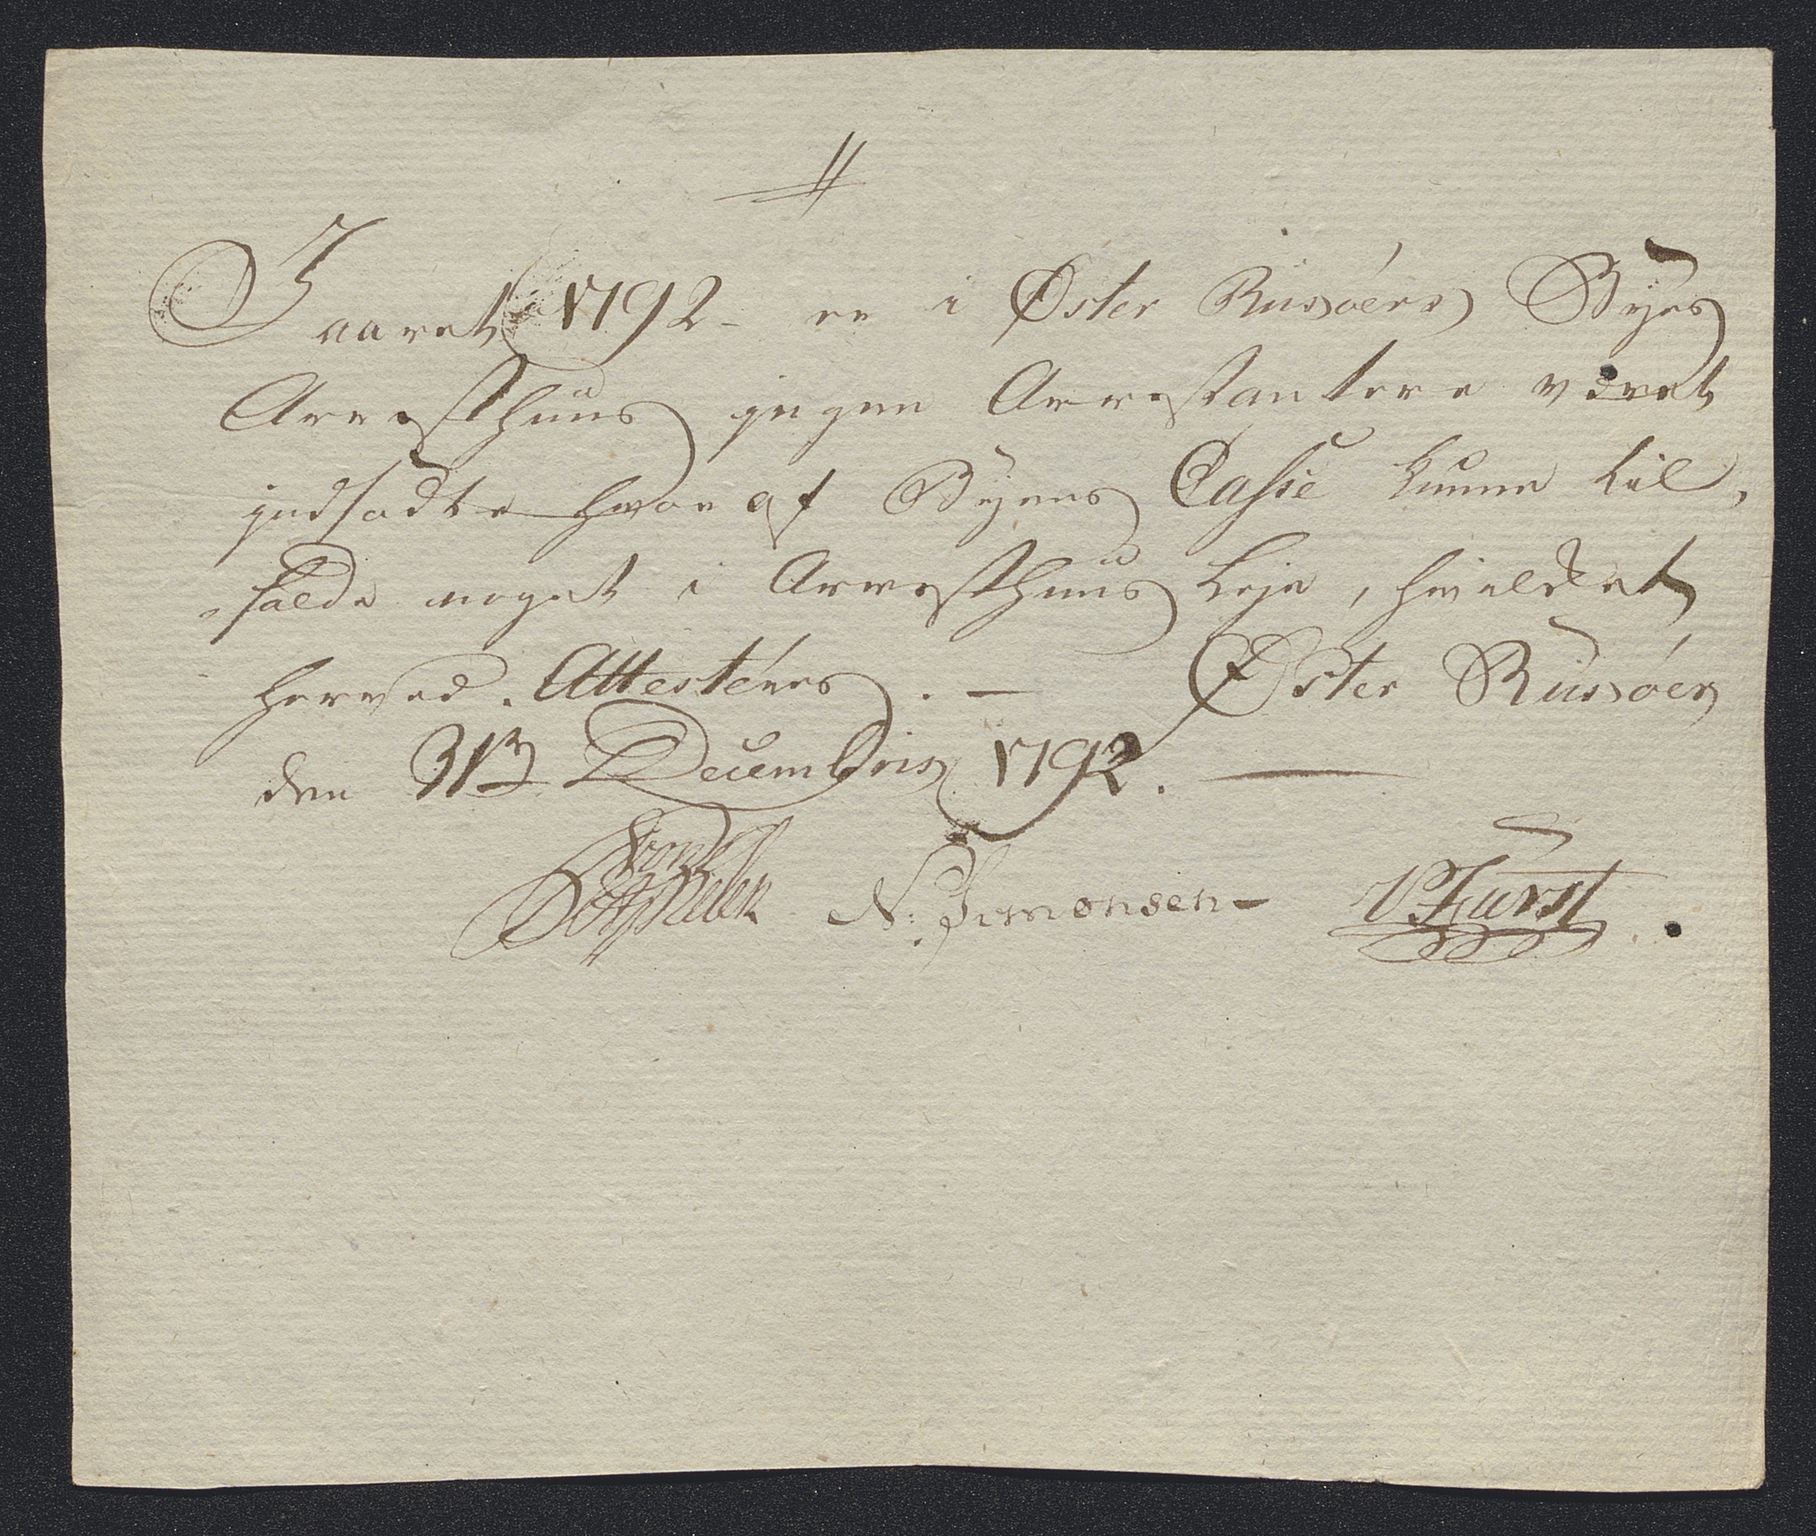 I aaret 1792 - er i Øster Riisøers Byes
Arresthuus ingen Arrestantere været
indsadte hvor af Byens Casse kunne til,
falde noget i Arresthuus Leje, hvilket
herved Attesteres. — Øster Riisøer
den 31te Decembris 1792. —
N: Simonsen - V. Fürst